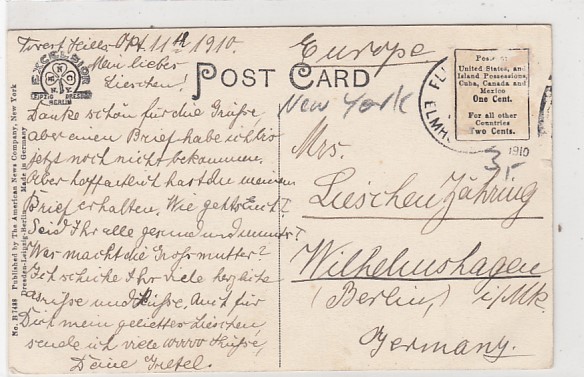 Forest Hills Okt. 11th 1910.
Mein lieber
Lieschen!
Danke schön für die Grüße,
aber einen Brief habe ich bis
jetzt noch nicht bekommen.
Aber hoffentlich hast du meinen
Brief erhalten. Wie geht's Euch?
Seid Ihr alle gesund und munter?
Was macht die Grossmutter?
Ich schicke Ihr viele herzliche
Grüsse und Küsse. Auch für
Dich mein geliebtes Lieschen,
sende ich viele 10000 Küsse,
Deine Gretel.
EXCELSIOR
N.Y.
LEIPZIG DRESDEN
BERLIN
POST CARD
Europe
New York
Postage
United States, and
Island Possessions,
Cuba, Canada and
Mexico
One Cent.
For all other
Countries
Two Cents.
ELMH
1910
Mrs.
Lieschen Jähring
Wilhelmshagen
(Berlin,) i/Mk.
Germany.
No. B 7468 Published by The American News Company, New York
Dresden-Leipzig-Berlin. Made in Germany